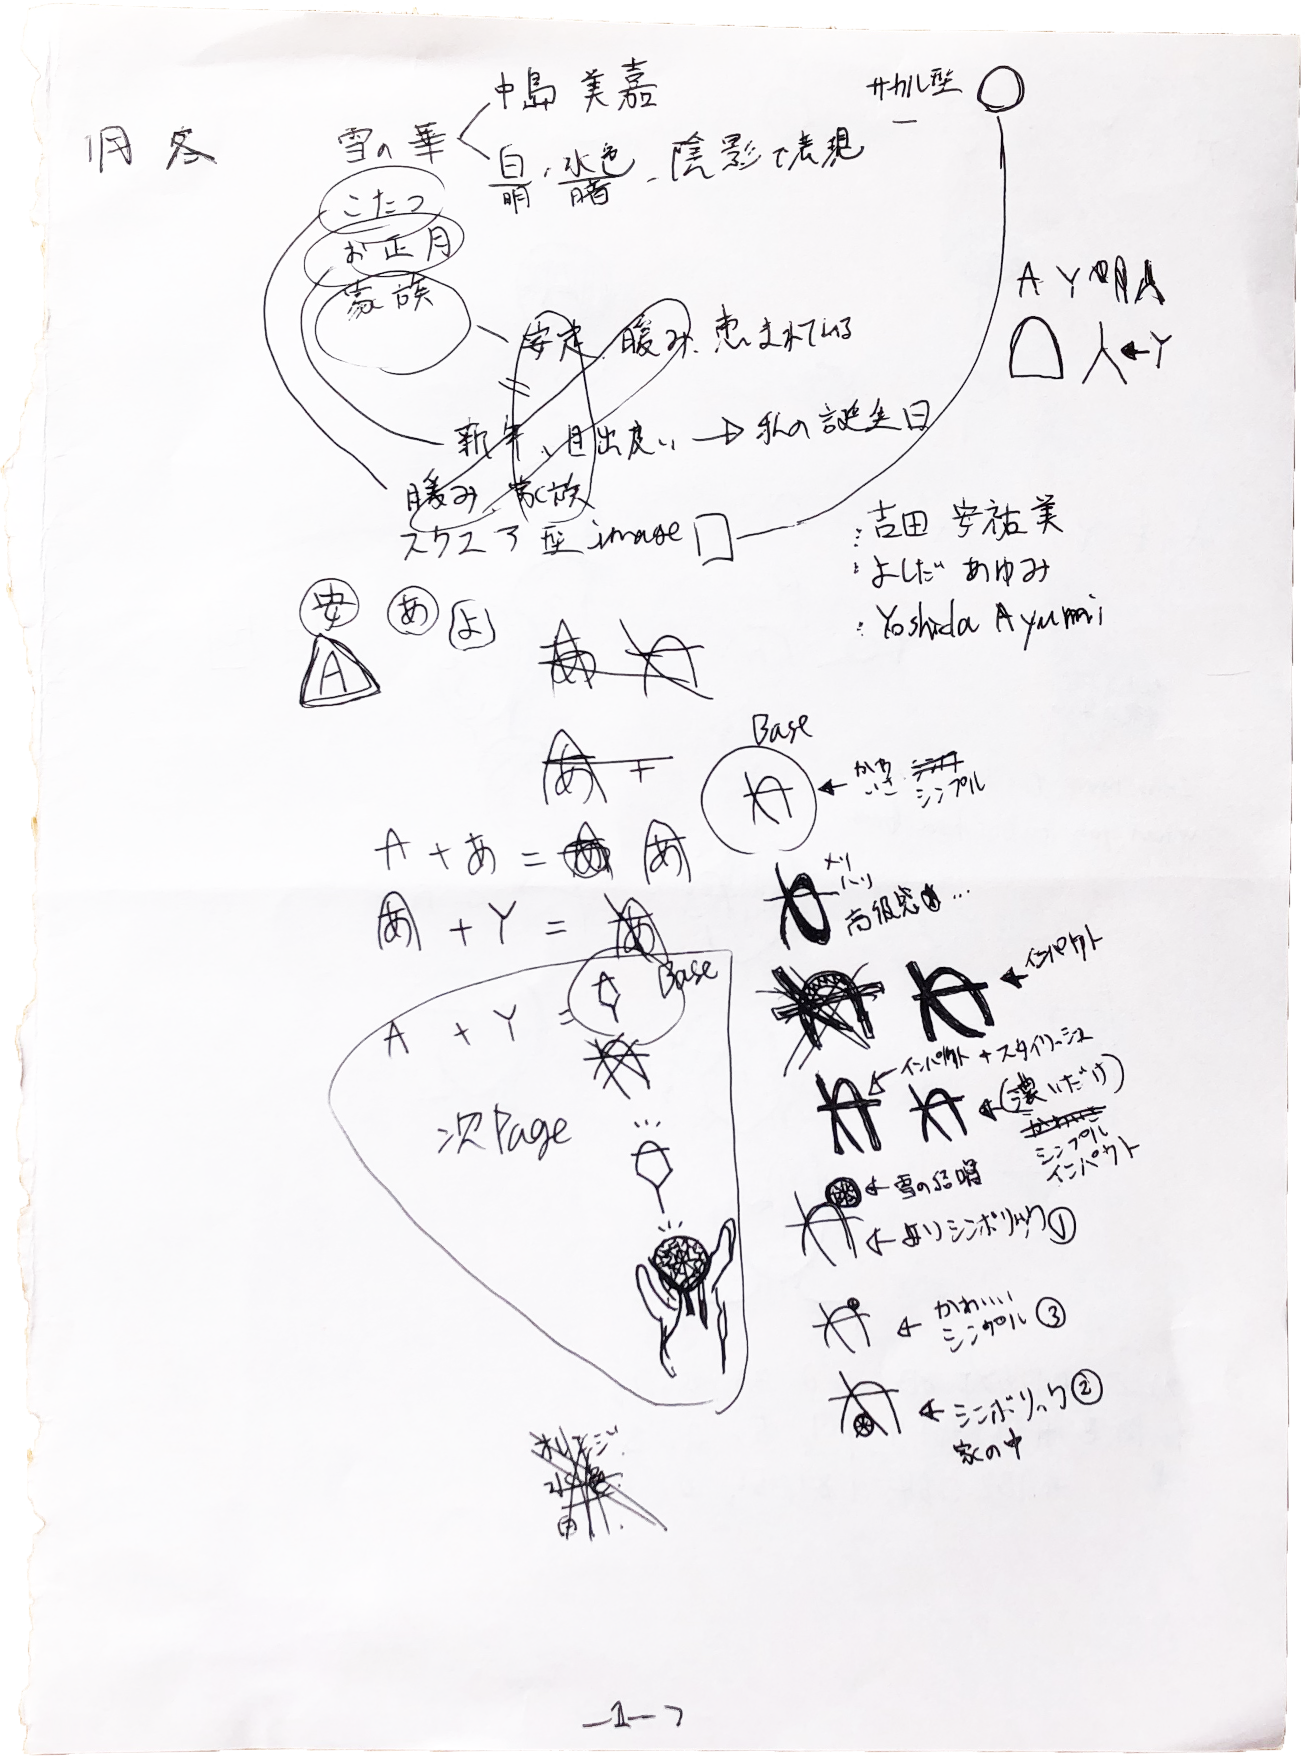 1月 冬
雪の華
中島 美嘉
白・水色・陰影で表現
明 暗
サカル型
こたつ
お正月
家族
安定、暖み、恵まれている
新年、目出度い → 私の誕生日
暖み、家族
スクエア型 image
A Y
人 ← Y
: 吉田 安祐美
: よしだ あゆみ
: Yoshida Ayumi
安 あ よ
A
あ +
Base
← かわいさ シンプル
A + あ = あ
あ + Y = あ
メリハリ
高級感 …
← インパクト
A + Y =
Base
次Page
← インパクト + スタイリッシュ
← (濃いだけ)
シンプル
インパクト
← 雪の結晶
← よりシンボリック ①
← かわいい
シンプル ③
← シンボリック ②
家の中
オレンジ
水色
白
-1-